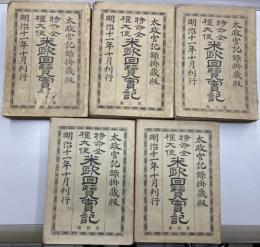 太政官記録掛蔵版
特命全
權大使
米歐回覽實記
明治十一年十月刊行
太政官記録掛蔵版
特命全
權大使
米歐回覽實記
明治十一年十月刊行
太政官記録掛蔵版
特命全
權大使
米歐回覽實記
明治十一年十月刊行
太政官記録掛蔵版
特命全
權大使
米歐回覽實記
明治十一年十月刊行
太政官記録掛蔵版
特命全
權大使
米歐回覽實記
明治十一年十月刊行